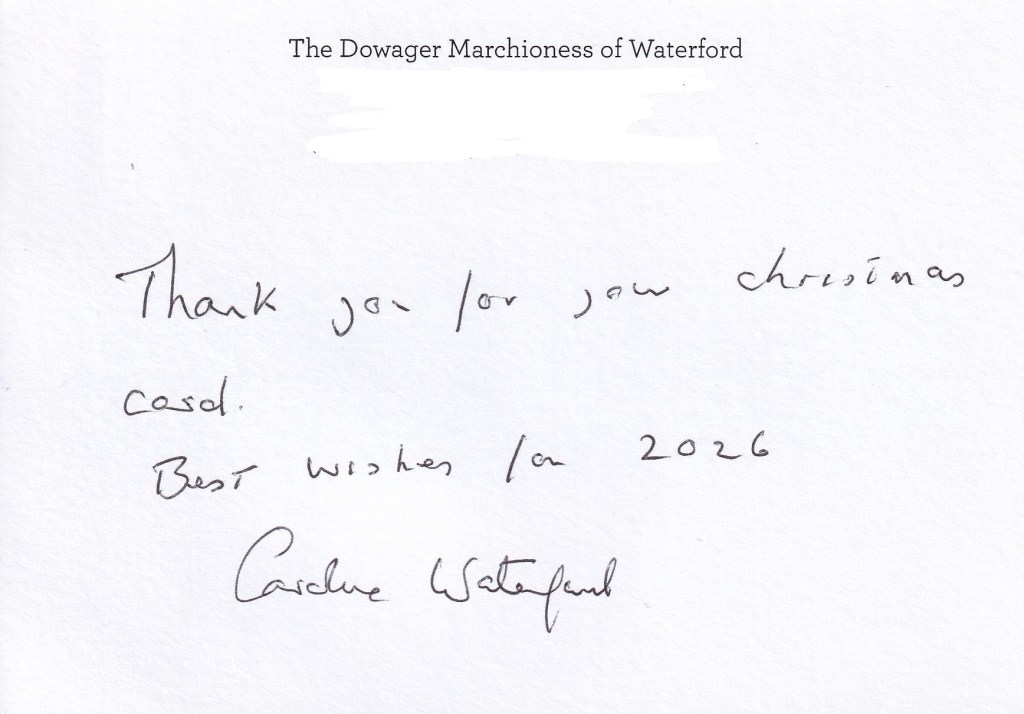 The Dowager Marchioness of Waterford
Thank you for your christmas
card.
Best wishes for 2026
Caroline Waterford